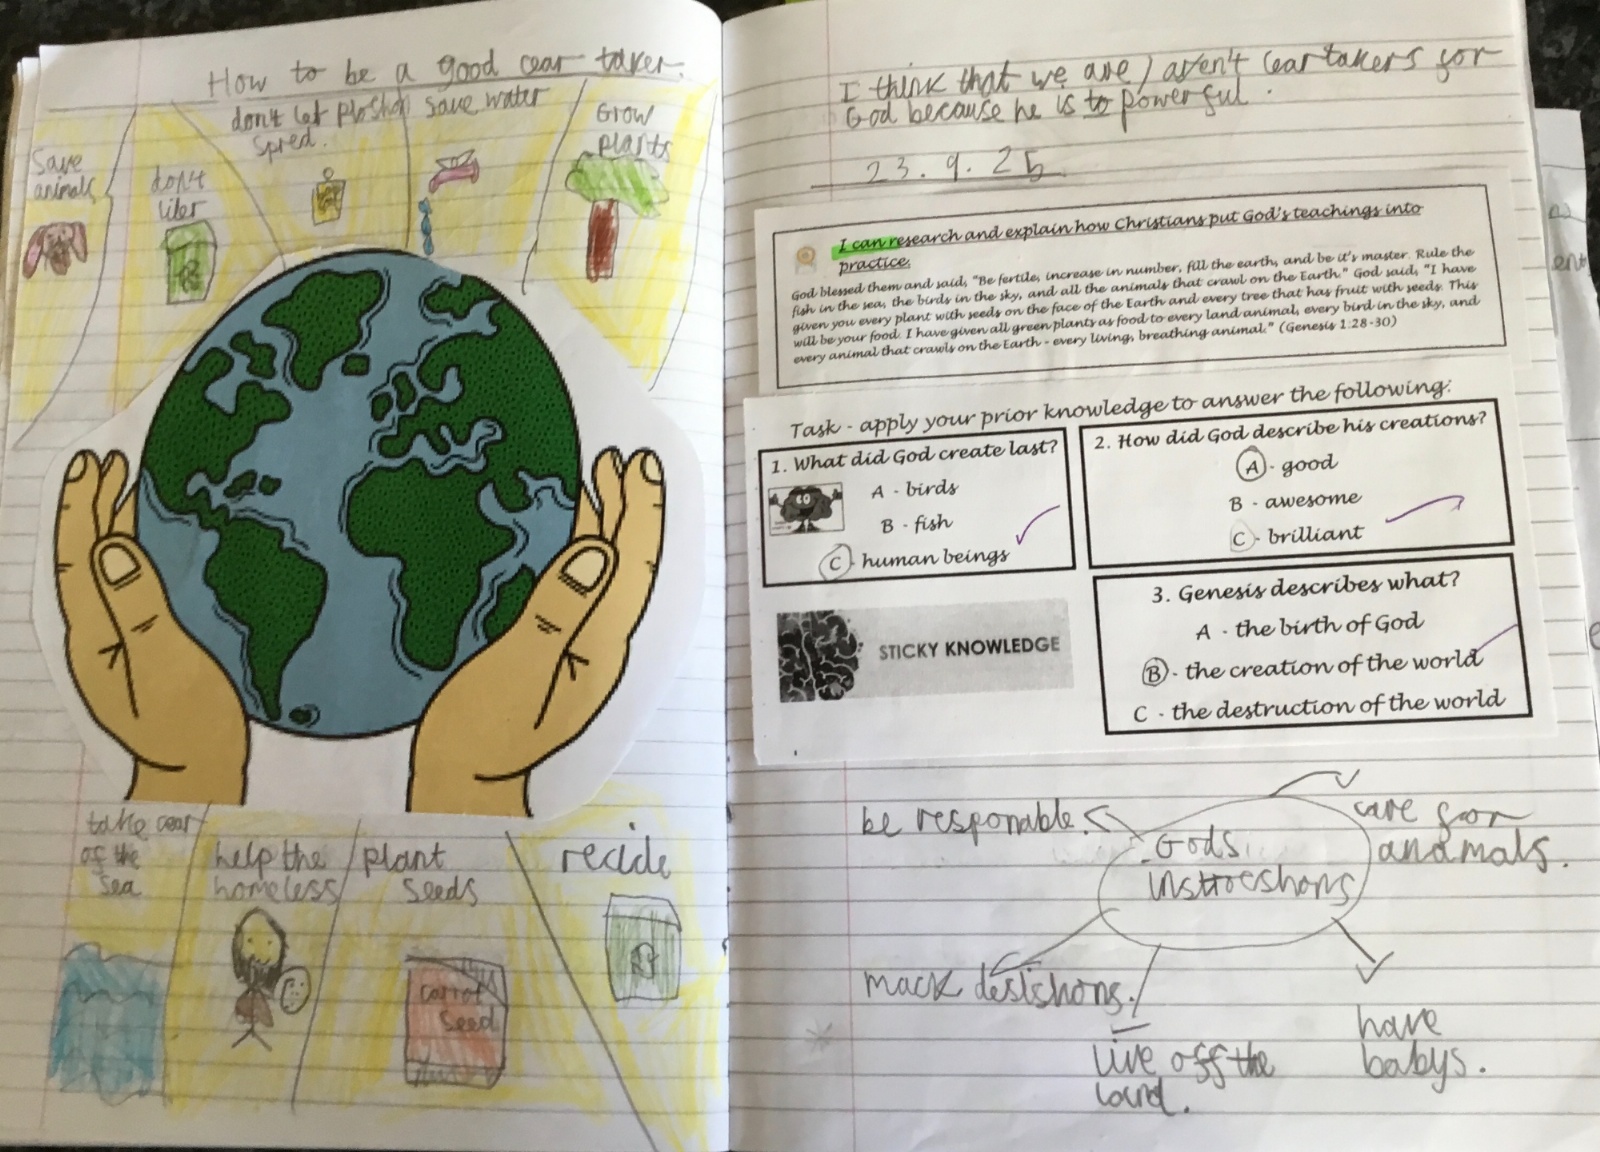 How to be a good cear taker.
Save
animals
don't
liter
don't let ploshon
spred.
save water
Grow
plants
take cear
of the
sea
help the
homeless
plant
seeds
carrot
seed
recicle
I think that we are / aren't ceartakers for
God because he is to powerful.
23.9.25
I can research and explain how Christians put God's teachings into
practice.
God blessed them and said, "Be fertile, increase in number, fill the earth, and be it's master. Rule the
fish in the sea, the birds in the sky, and all the animals that crawl on the Earth." God said, "I have
given you every plant with seeds on the face of the Earth and every tree that has fruit with seeds. This
will be your food. I have given all green plants as food to every land animal, every bird in the sky, and
every animal that crawls on the Earth - every living, breathing animal." (Genesis 1:28-30)
Task - apply your prior knowledge to answer the following:
1. What did God create last?
A - birds
B - fish
C - human beings
2. How did God describe his creations?
A - good
B - awesome
C - brilliant
STICKY KNOWLEDGE
3. Genesis describes what?
A - the birth of God
B - the creation of the world
C - the destruction of the world
Gods
instroeshons
be responable.
care for
anamals.
mack desishons.
live off the
land.
have
babys.